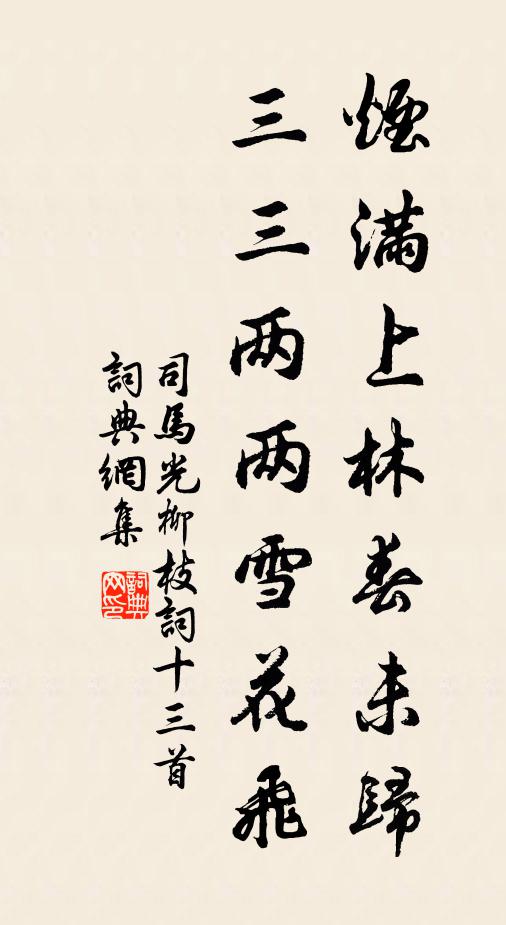 煙滿上林春未歸
三三两两雪花飛
司馬光柳枝詞十三首
詞典網集
詞典网印